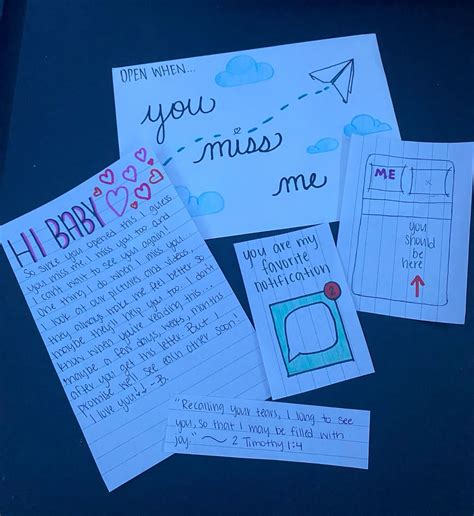 OPEN WHEN...
you
miss
me
HI BABY
So since you opened this, I guess
you miss me. I miss you too and
I can't wait to see you again!
One thing I do when I miss you...
I look at our pictures and videos,
they always make me feel better so
maybe they'll help you too. I don't
know when you're reading this...
maybe a few days, weeks, months
after you get this letter. But I
promise we'll see each other soon!
I love you! - B.
you are my
favorite
notification
2
ME
X
you
should
be
here
"Recalling your tears, I long to see
you, so that I may be filled with
joy." 2 Timothy 1:4